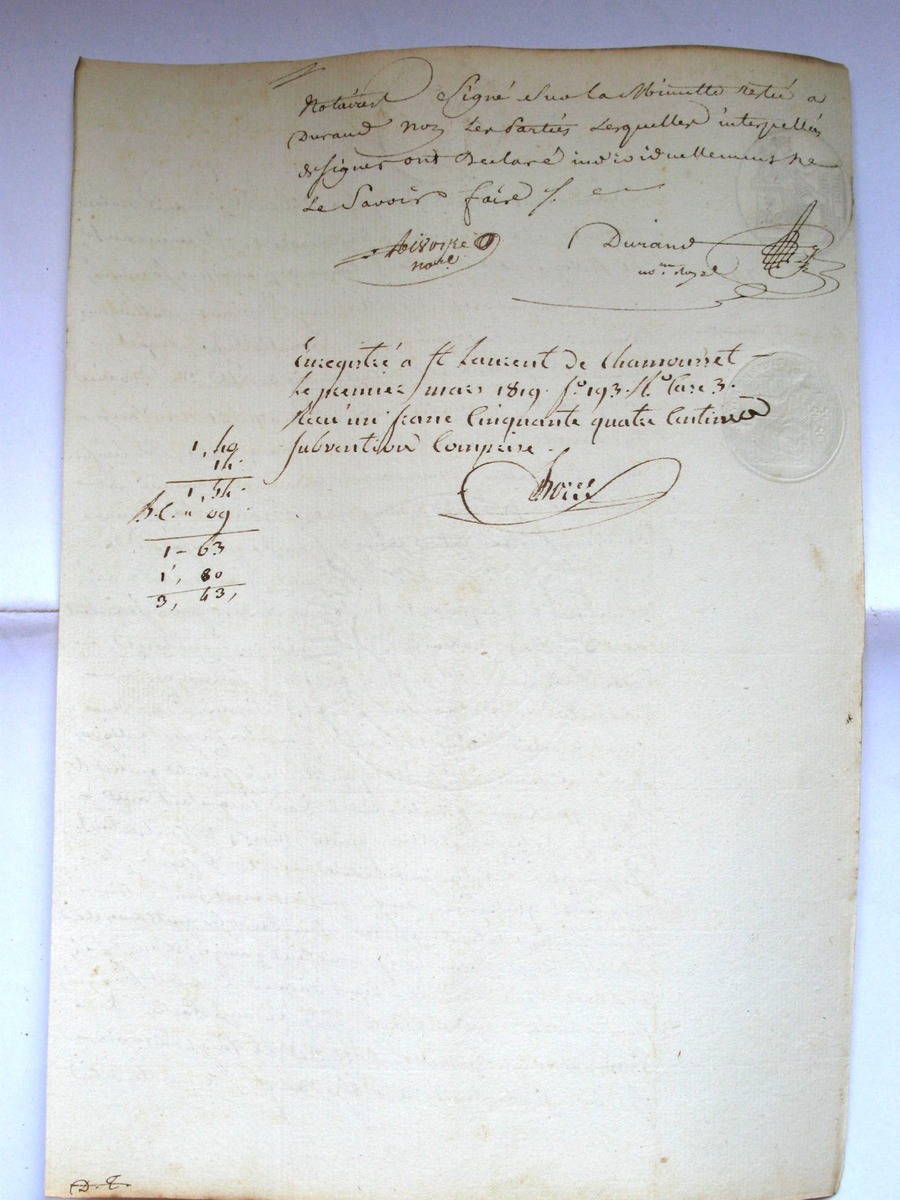 Notaires Signé sur la Minutte resté a
Durand no.re Les Parties Lesquelles interpellées
de signer ont Declaré individuellement ne
Le Savoir faire /.
no.re
Durand
no.re Royal
Enregistré a St Laurent de Chamousset
Le premier mars 1819. f.o 193. R.o Case 3.
Recu un franc Cinquante quatre Centimes
Subvention Comprise.
1, 40
14.
1, 54.
09
1 - 63
1, 80
3, 43,
D. T.